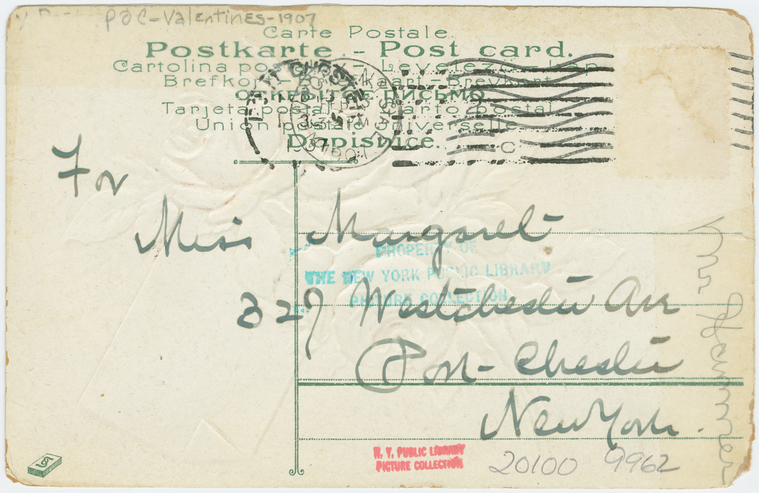 PoC-Valentines-1907
Carte Postale
Postkarte - Post card.
Cartolina postale - Levelező-Lap
Brefkort - Briefkaart - Brevkort
ОТКРЫТОЕ ПИСЬМО
Tarjeta postal - Carto postal
Union postale universelle
Dopisnice.
PORT CHESTER
For
Miss Margaret
327 Westchester Ave
Port-Chester
New York.
PROPERTY OF
THE NEW YORK PUBLIC LIBRARY
PICTURE COLLECTION
N. Y. PUBLIC LIBRARY
PICTURE COLLECTION
20100 9962